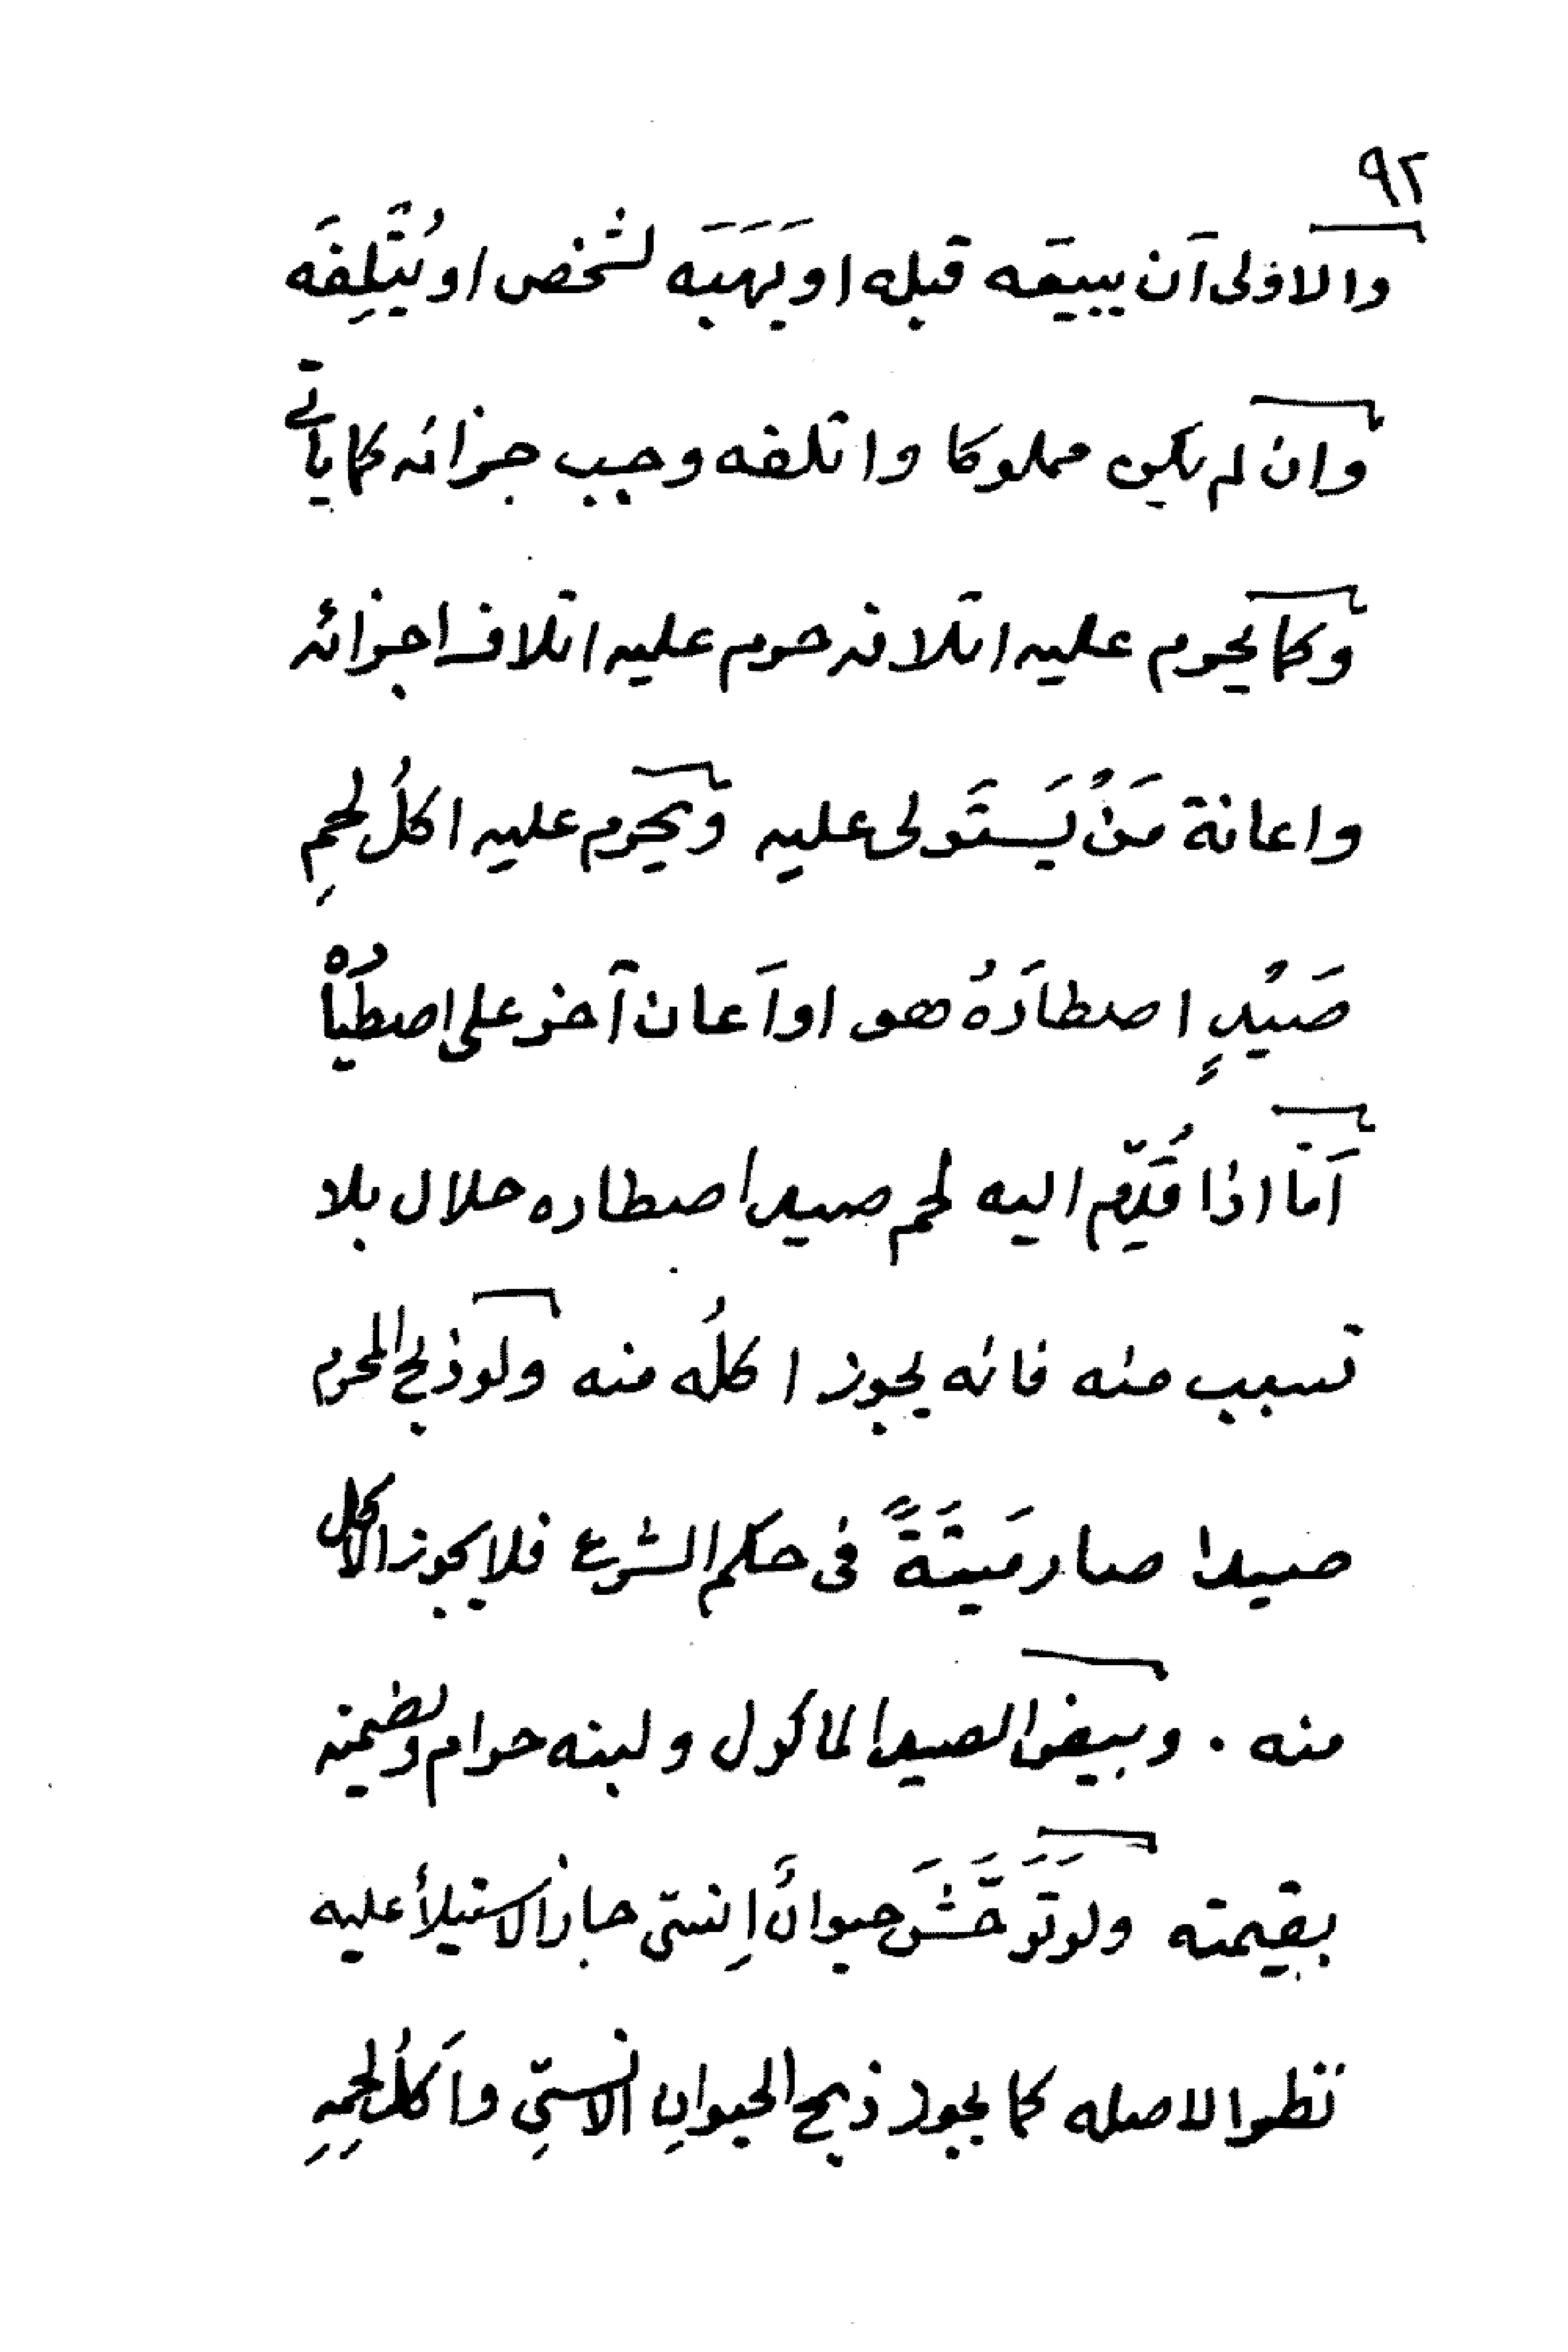 ٩٢
والاولى اَن يبيعَه قبله او يَهَبَه لشخص او يُتْلِفَه
وان لم يكن مملوكا واتلفه وجب جزائه كما ياتى
وكما يحرم عليه اتلافه حرم عليه اتلاف اجزائه
واعانة مَنْ يَستَولى عليه ويحرم عليه اكلُ لحمِ
صَيْدٍ اصطادَهُ هو او اَعان آخر على اصطيادُه
اَمّا اذا قُدِّم اليه لحم صيد اصطاده حلال بلا
تسبب منه فانه يجوز اكلُه منه ولو ذبح المحرم
صيدا صار مَيتَةً فى حكم الشرع فلا يجوز الاكل
منه . وبيض الصيد الماكول ولبنه حرام ويضمنه
بقيمته ولو تَوَحَّشَ حيوانٌ اِنسىّ جاز الاستيلأ عليه
نظرا لاصله كما يجوز ذبح الحيوانِ الانسىِّ واَكلُ لحمِهِ